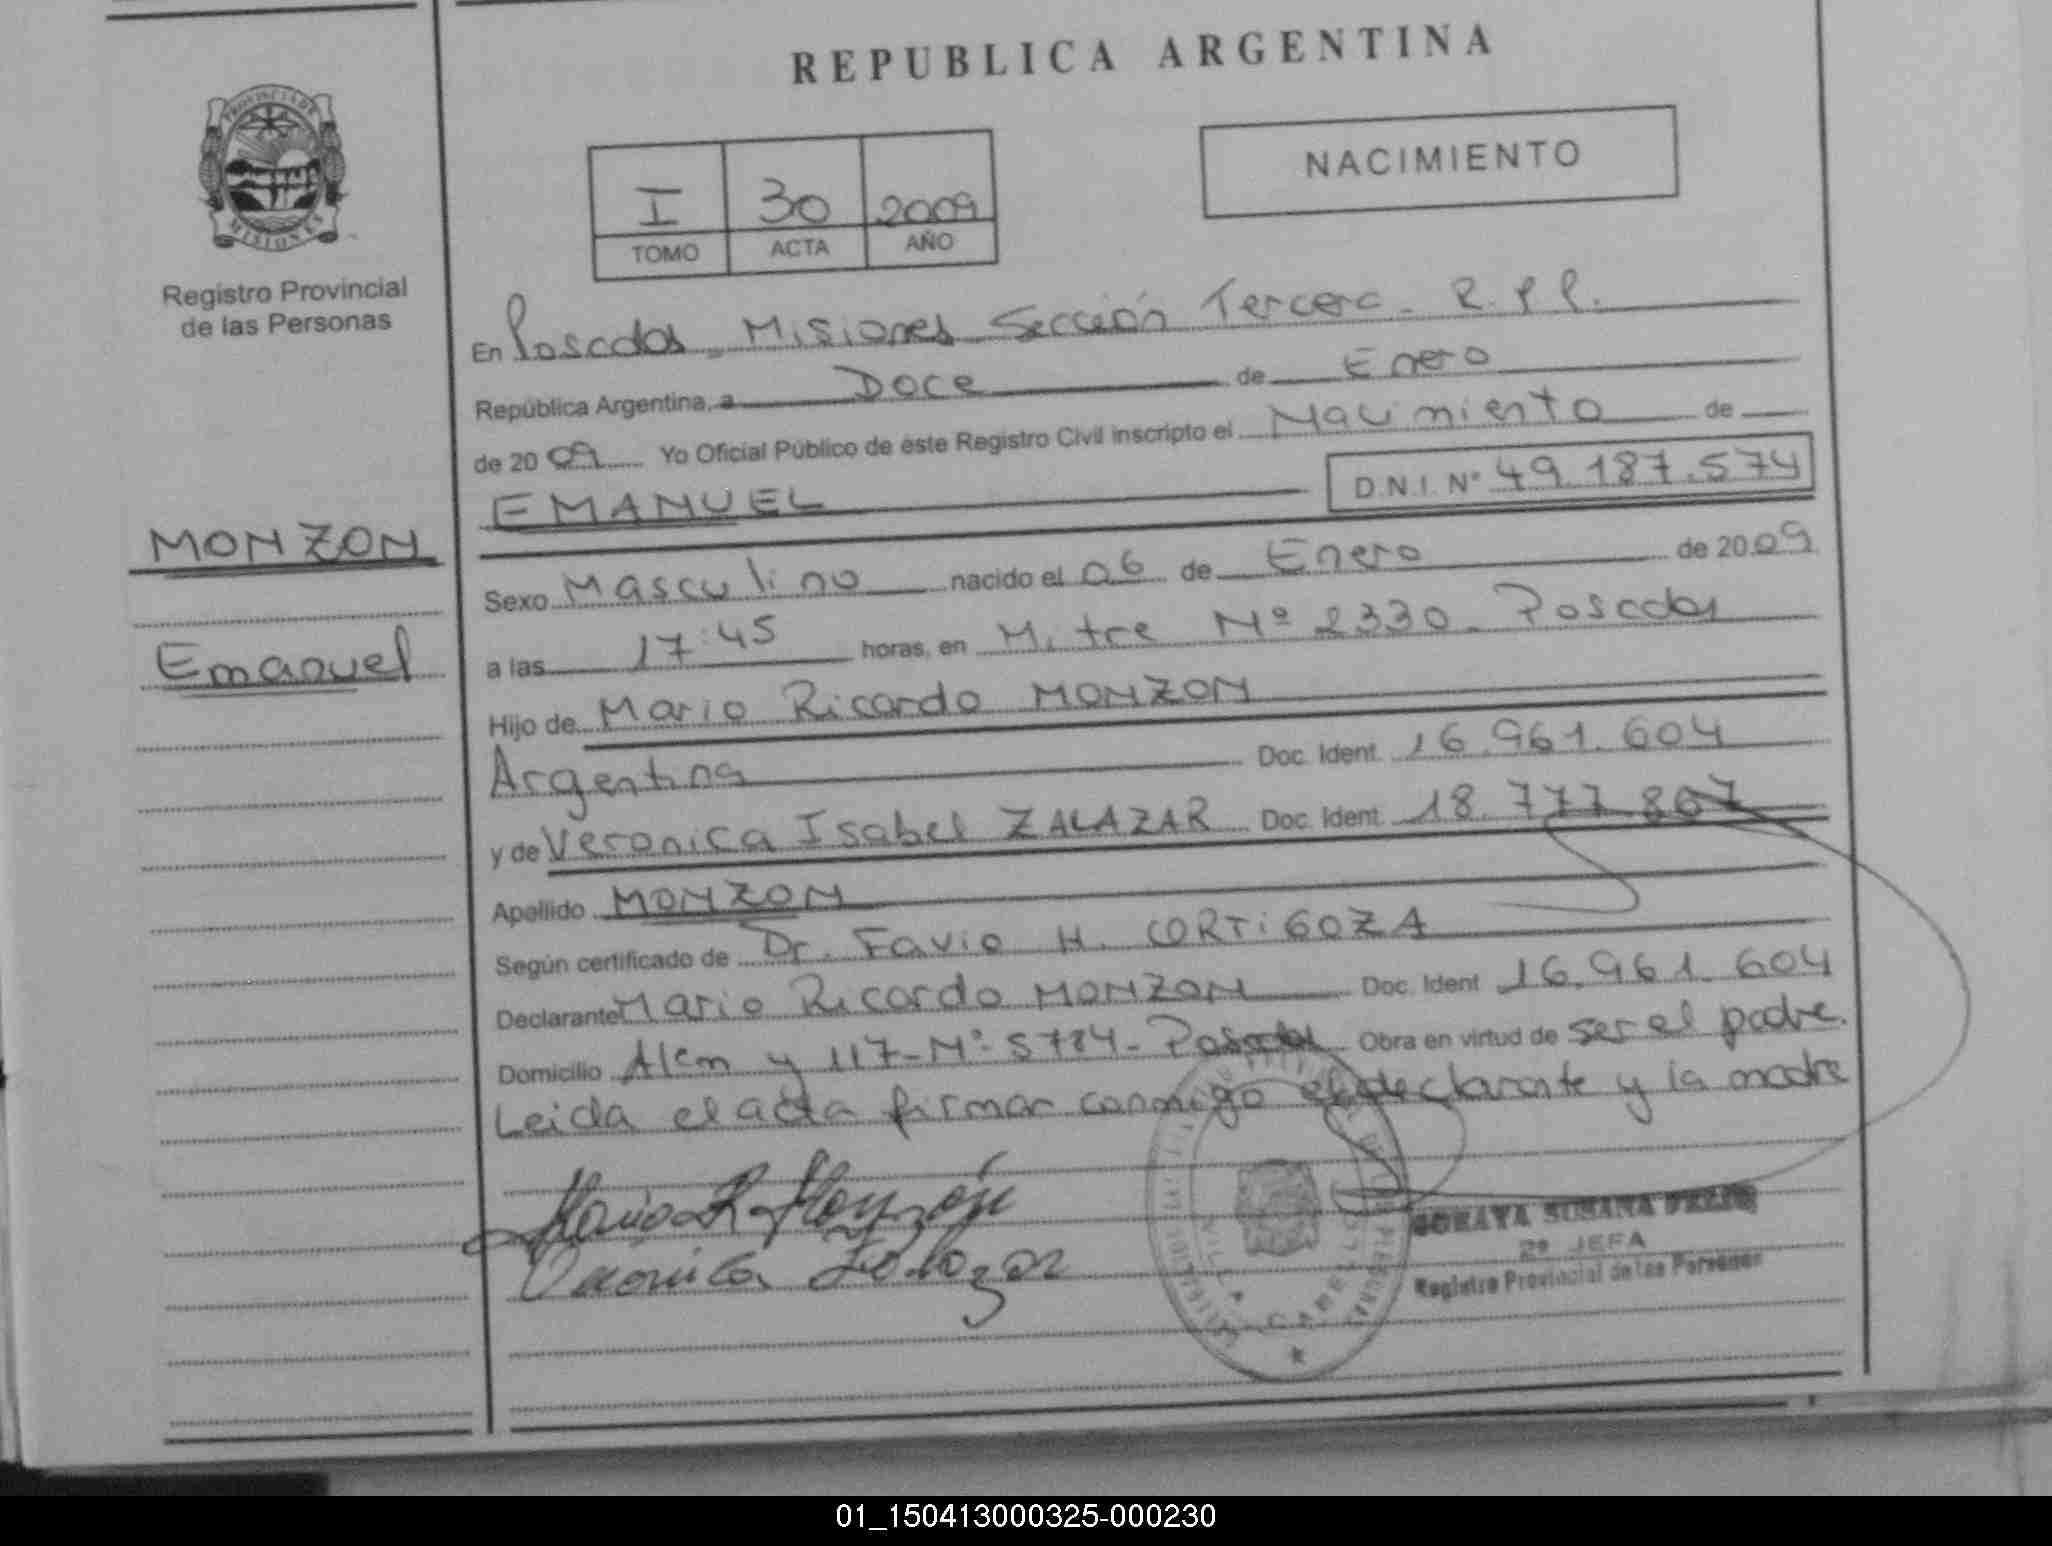 REPUBLICA ARGENTINA
PROVINCIA DE
MISIONES
Registro Provincial
de las Personas
NACIMIENTO
I 30 2009
TOMO ACTA AÑO
En Posadas - Misiones Sección Tercera - R.P.P.
República Argentina, a Doce de Enero
de 2009 Yo Oficial Público de este Registro Civil inscripto el Nacimiento de
EMANUEL D.N.I. Nº 49.187.574
MONZON
Emanuel
Sexo Masculino nacido el 06 de Enero de 2009
a las 17:45 horas, en Mitre Nº 2330 - Posadas
Hijo de Mario Ricardo MONZON
Argentina Doc. Ident. 16.961.604
y de Veronica Isabel ZALAZAR Doc. Ident. 18.777.867
Apellido MONZON
Según certificado de Dr. Favio H. CORTiGOZA
Declarante Mario Ricardo MONZON Doc. Ident 16.961.604
Domicilio Alem y 117 - Nº 5784 - Posadas Obra en virtud de ser el padre.
Leida el acta firman conmigo el declarante y la madre
Mario R Monzón
Veronica Zalazar
SORAYA SUSANA
2º JEFA
Registro Provincial de las Personas
01_150413000325-000230